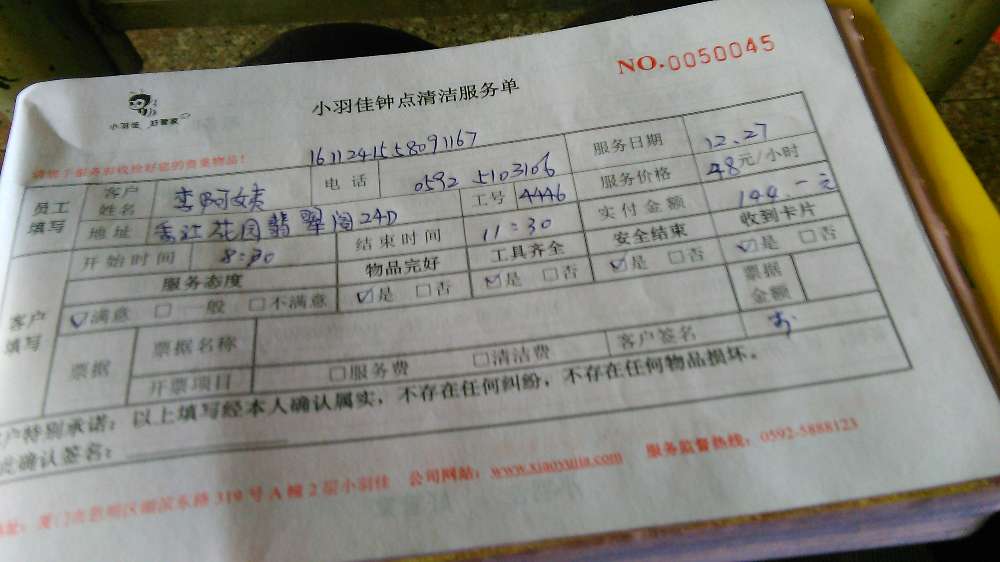 NO.0050045
小羽佳 好管家
小羽佳钟点清洁服务单
请您于服务前收拾好您的贵重物品!
1611241558091167
员工填写 客户姓名 李阿姨 电话 0592 5103106 服务日期 12.27
地址 香江花园翡翠阁24D 工号 4446 服务价格 48元/小时
开始时间 8:30 结束时间 11:30 实付金额 144 一元
客户填写 服务态度 物品完好 工具齐全 安全结束 收到卡片
☑满意 □一般 □不满意 ☑是 □否 ☑是 □否 ☑是 □否 ☑是 □否
票据 票据名称 票据金额
开票项目 □服务费 □清洁费 客户签名
户特别承诺:以上填写经本人确认属实,不存在任何纠纷,不存在任何物品损坏。
此确认签名:
址:厦门市思明区湖滨东路319号A幢2层小羽佳 公司网站:www.xiaoyujia.com 服务监督热线:0592-5888123